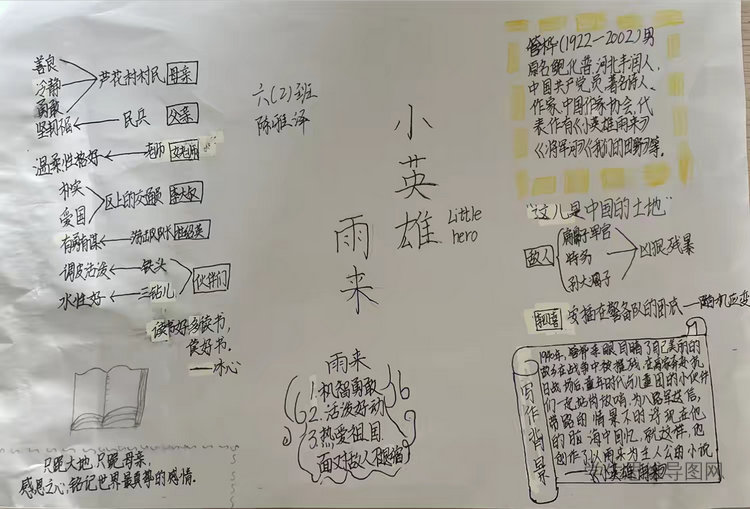 善良
冷静
勇敢
芦花村村民 母亲
坚韧顽强 民兵 父亲
温柔性格好 老师
朴实
爱国
区上的交通员 李大叔
有勇有谋
调皮活泼 铁头
水性好 三钻儿
伙伴们
读书好多读书，
读好书。
——冰心
只跪大地，只跪母亲，
感恩之心，铭记世界最真挚的感情.
六(2)班
陈雅译
小英雄
雨来
Little
hero
雨来
1.机智勇敢
2.活泼好动
3.热爱祖国
面对敌人不退缩
管桦(1922—2002)男
原名鲍化普,河北丰润人,
中国共产党党员,著名诗人、
作家.中国作家协会,代
表作有《小英雄雨来》
《将军河》《我们的田野》等.
"这儿是中国的土地"
敌人
扁鼻子军官
特务
孙大瘤子
凶狠残暴
安插在警备队的卧底——随机应变
写作背景
1940年,管桦亲眼目睹了自己美丽的
故乡在战争中被摧残,在离家奔赴抗
日战场后,童年时代儿童团的小伙伴
们一起站岗放哨,为八路军送信,
带路的情景不时浮现在他
的脑海中回忆,就这样,他
创作了以雨来为主人公的小说
《小英雄雨来》
导图网